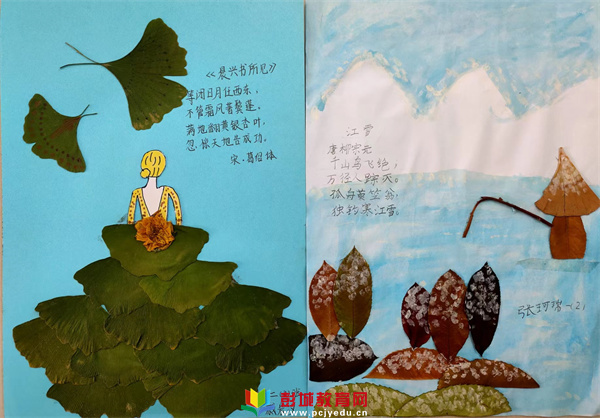 《晨兴书所见》
等闲日月任西东，
不管霜风著鬓蓬。
满地翻黄银杏叶，
忽惊天地告成功。
宋·葛绍体
江雪
唐柳宗元
千山鸟飞绝，
万径人踪灭。
孤舟蓑笠翁，
独钓寒江雪。
(2)
彭城教育网
www.pcjyedu.cn